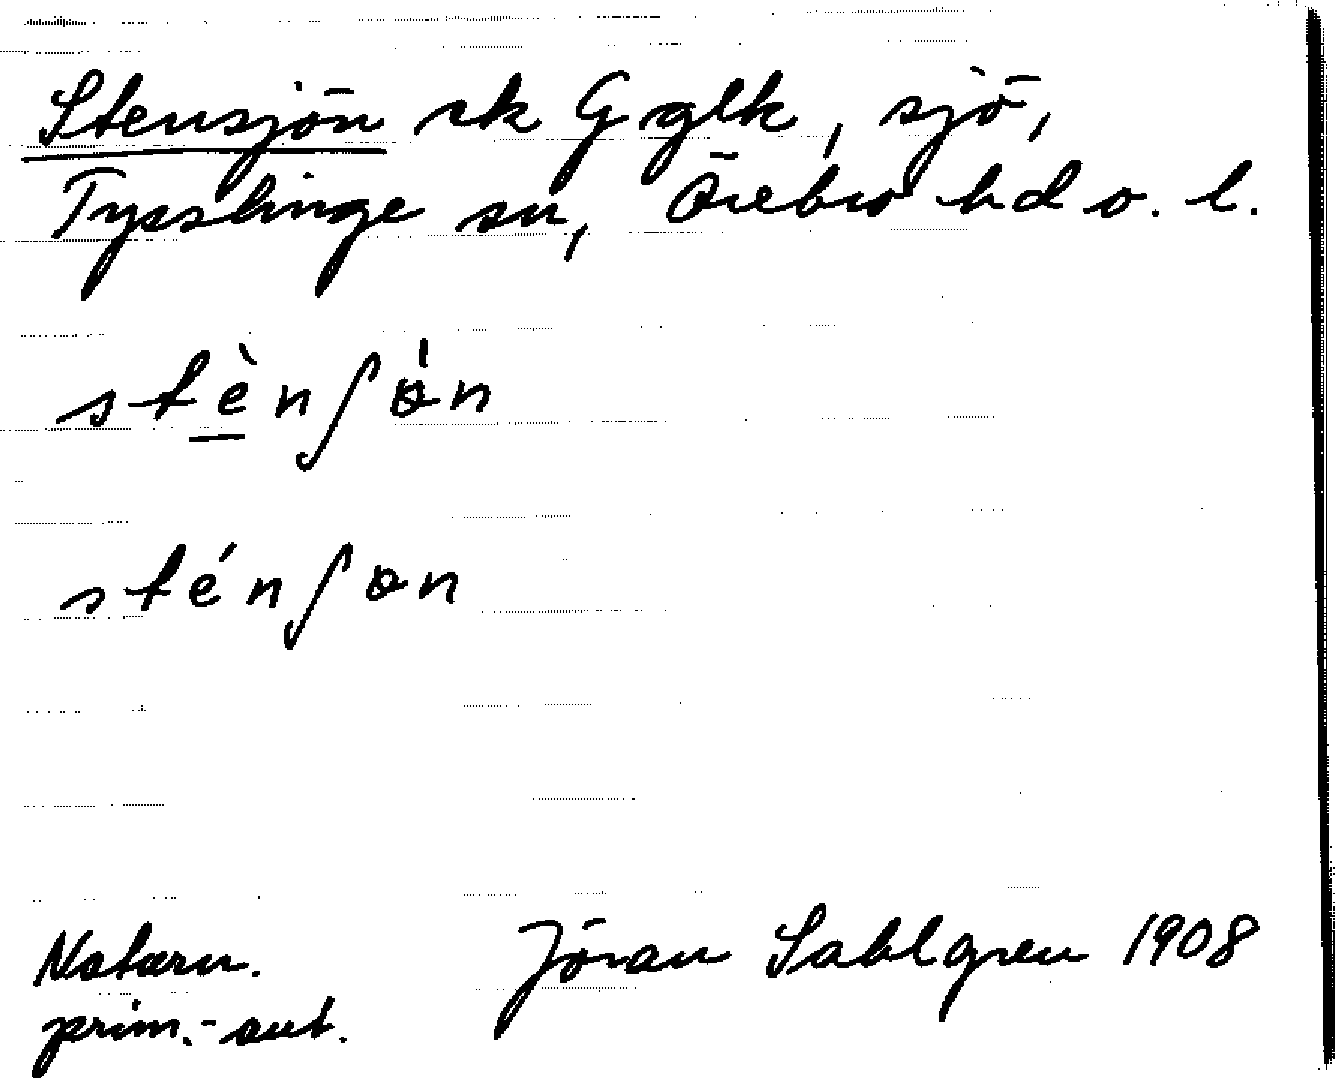 Stensjön rk G glk, sjö,
Tysslinge sn, Örebro hd o. l.
stènʃɵ̀n
sténʃɵn
Naturn.
prim.-aut.
Jöran Sahlgren 1908